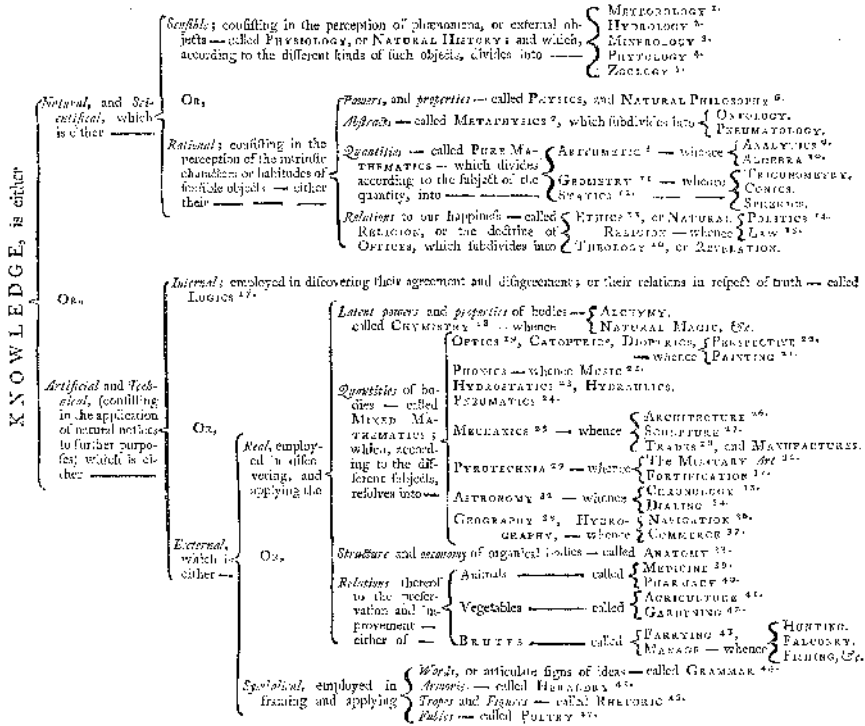 KNOWLEDGE, is either
Natural, and Sci-
entifical, which
is either
Sensible; consisting in the perception of phænomena, or external ob-
jects — called PHYSIOLOGY, or NATURAL HISTORY; and which,
according to the different kinds of such objects, divides into
METEOROLOGY 1.
HYDROLOGY 2.
MINEROLOGY 3.
PHYTOLOGY 4.
ZOOLOGY 5.
OR,
Rational; consisting in the
perception of the intrinsic
characters or habitudes of
sensible objects — either
their
Powers, and properties — called PHYSICS, and NATURAL PHILOSOPHY 6.
Abstracts — called METAPHYSICS 7, which subdivides into
ONTOLOGY.
PNEUMATOLOGY.
Quantities — called PURE MA-
THEMATICS — which divides
according to the subject of the
quantity, into
ARITHMETIC 8 — whence
ANALYTICS 9.
ALGEBRA 10.
GEOMETRY 11 — whence
STATICS 12.
TRIGONOMETRY.
CONICS.
SPHERICS.
Relations to our happiness — called
RELIGION, or the doctrine of
OFFICES, which subdivides into
ETHICS 13, or NATURAL
RELIGION — whence
POLITICS 14.
LAW 15.
THEOLOGY 16, or REVELATION.
OR,
Artificial and Tech-
nical, (consisting
in the application
of natural notices
to further purpo-
ses) which is ei-
ther
Internal; employed in discovering their agreement and disagreement; or their relations in respect of truth — called
LOGICS 17.
OR,
External,
which is
either
Real, employ-
ed in disco-
vering, and
applying the
Latent powers and properties of bodies —
called CHYMISTRY 18 — whence
ALCHYMY.
NATURAL MAGIC, &c.
Quantities of bo-
dies — called
MIXED MA-
THEMATICS;
which, accord-
ing to the dif-
ferent subjects,
resolves into
OPTICS 19, CATOPTRICS, DIOPTRICS,
— whence
PERSPECTIVE 20.
PAINTING 21.
PHONICS — whence MUSIC 22.
HYDROSTATICS 23, HYDRAULICS.
PNEUMATICS 24.
MECHANICS 25 — whence
ARCHITECTURE 26.
SCULPTURE 27.
TRADES 28, and MANUFACTURES.
PYROTECHNIA 29 — whence
The MILITARY Art 30.
FORTIFICATION 31.
ASTRONOMY 32 — whence
CHRONOLOGY 33.
DIALING 34.
GEOGRAPHY 35, HYDRO-
GRAPHY, — whence
NAVIGATION 36.
COMMERCE 37.
Structure and œconomy of organical bodies — called ANATOMY 38.
Relations thereof
to the preser-
vation and im-
provement —
either of
Animals — called
MEDICINE 39.
PHARMACY 40.
Vegetables — called
AGRICULTURE 41.
GARDENING 42.
BRUTES — called
FARRYING 43,
MANAGE — whence
HUNTING.
FALCONRY.
FISHING, &c.
OR,
Symbolical, employed in
framing and applying
Words, or articulate signs of ideas — called GRAMMAR 44.
Armories — called HERALDRY 45.
Tropes and Figures — called RHETORIC 46.
Fables — called POETRY 47.